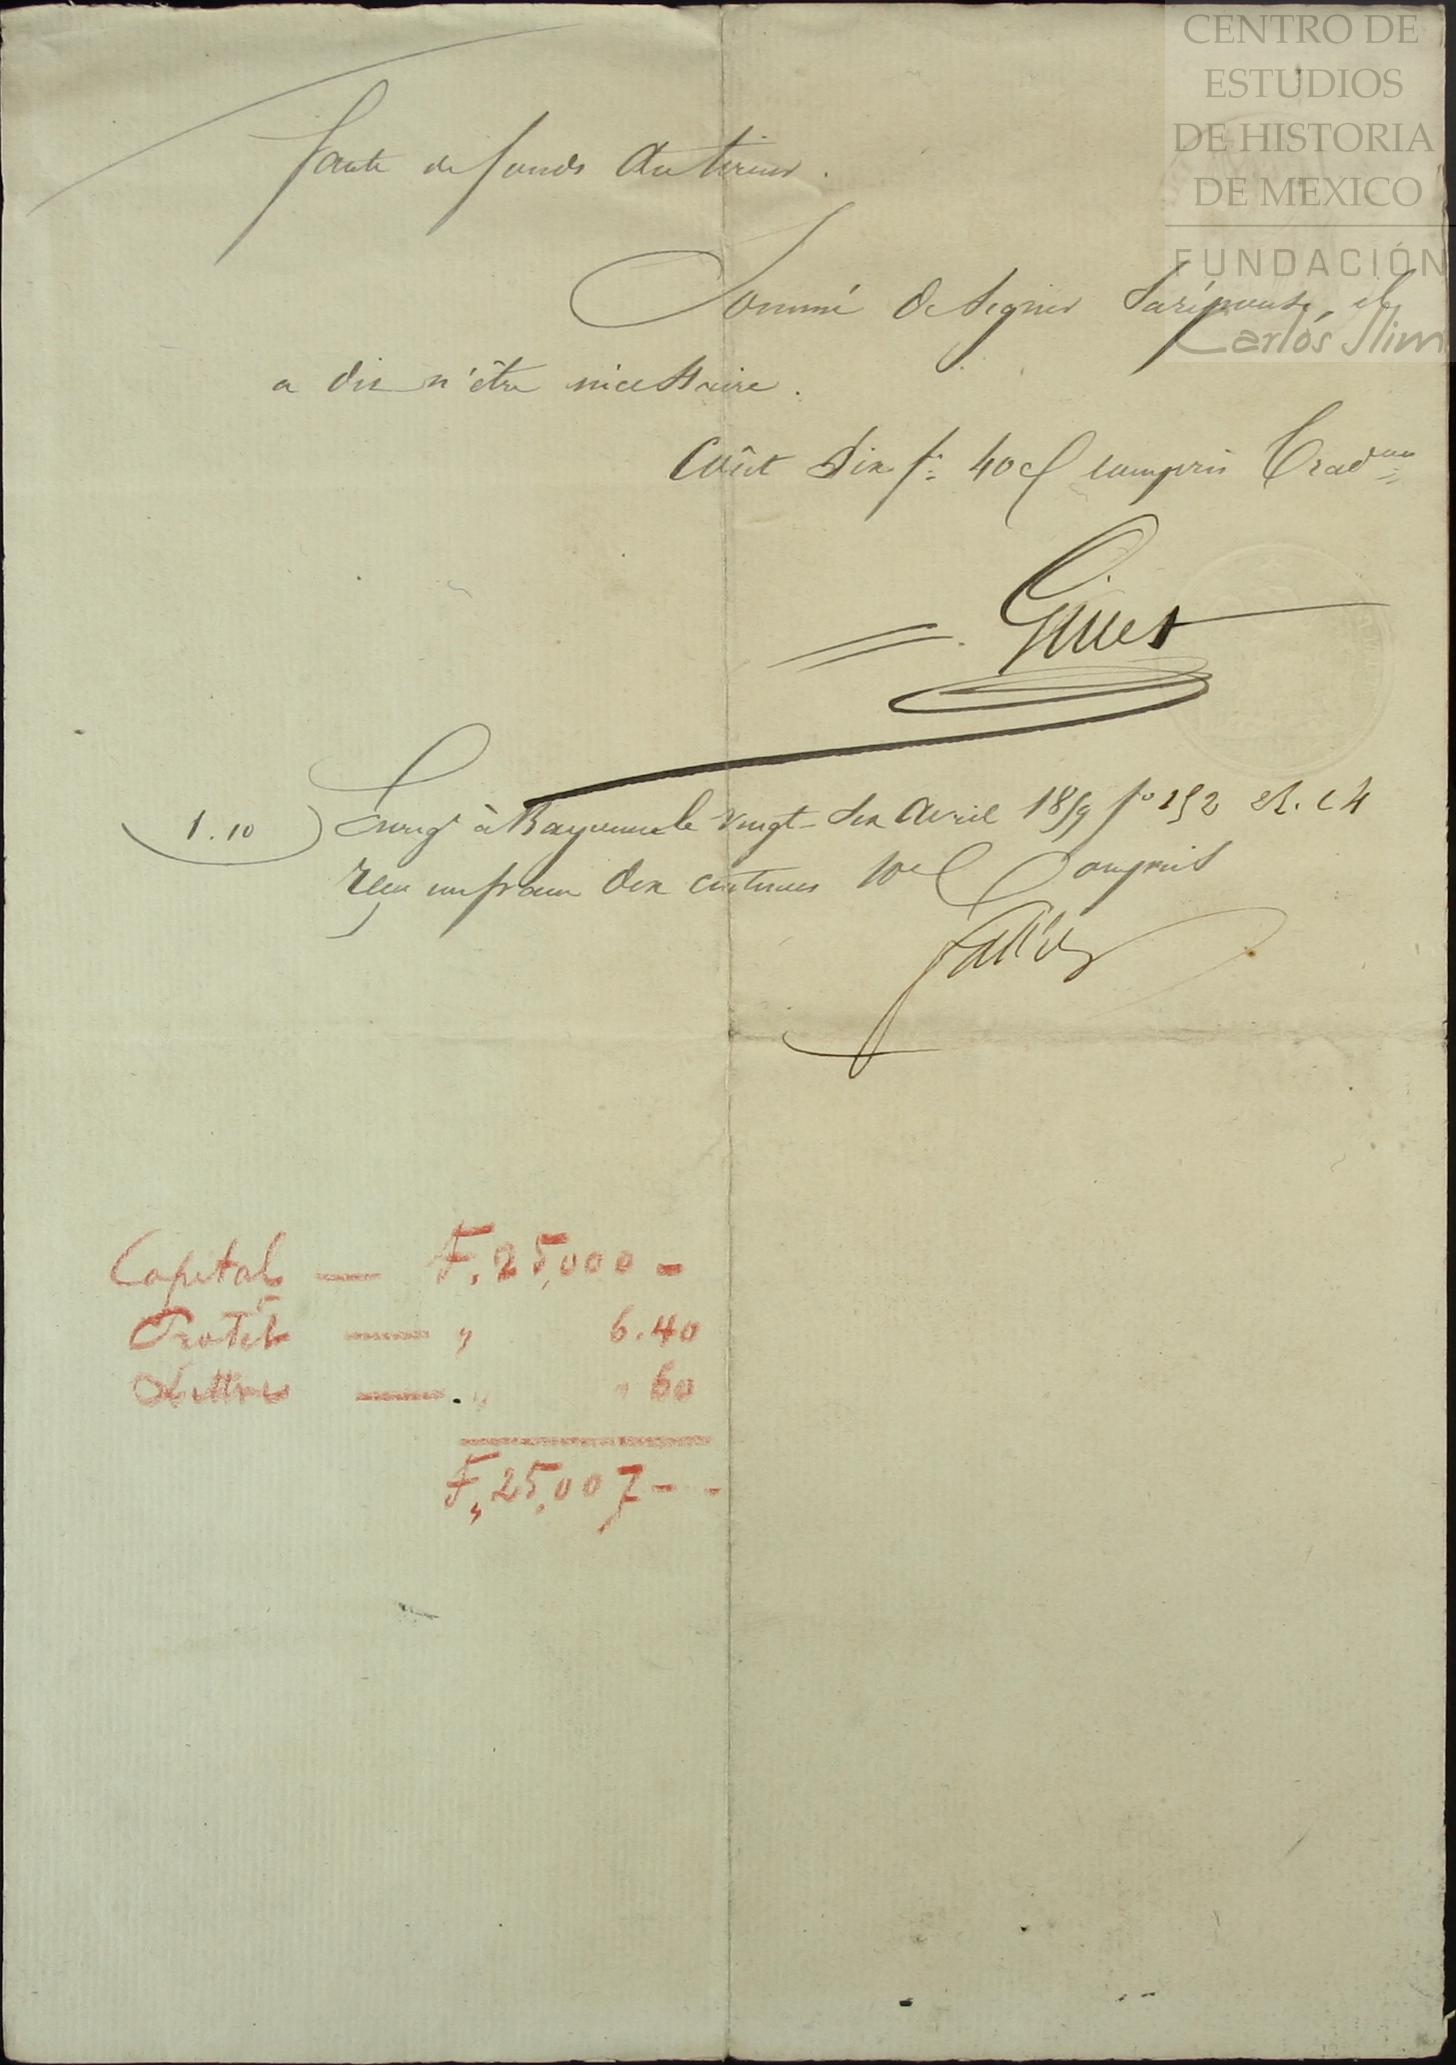 CENTRO DE
ESTUDIOS
DE HISTORIA
DE MEXICO
FUNDACIÓN
Carlos Slim
faute de fonds du tireur.
Sommé de signer sa réponse, il
a dit n'être nécessaire.
Coût six f. 40 c compris
1.10 Enreg à Bayonne le vingt-six Avril 1859 f° 152
reçu un franc dix centimes 10c Compris
Capital — F. 25,000 -
Protêt — " 6.40
Lettres — " " 60
F. 25,007 - -